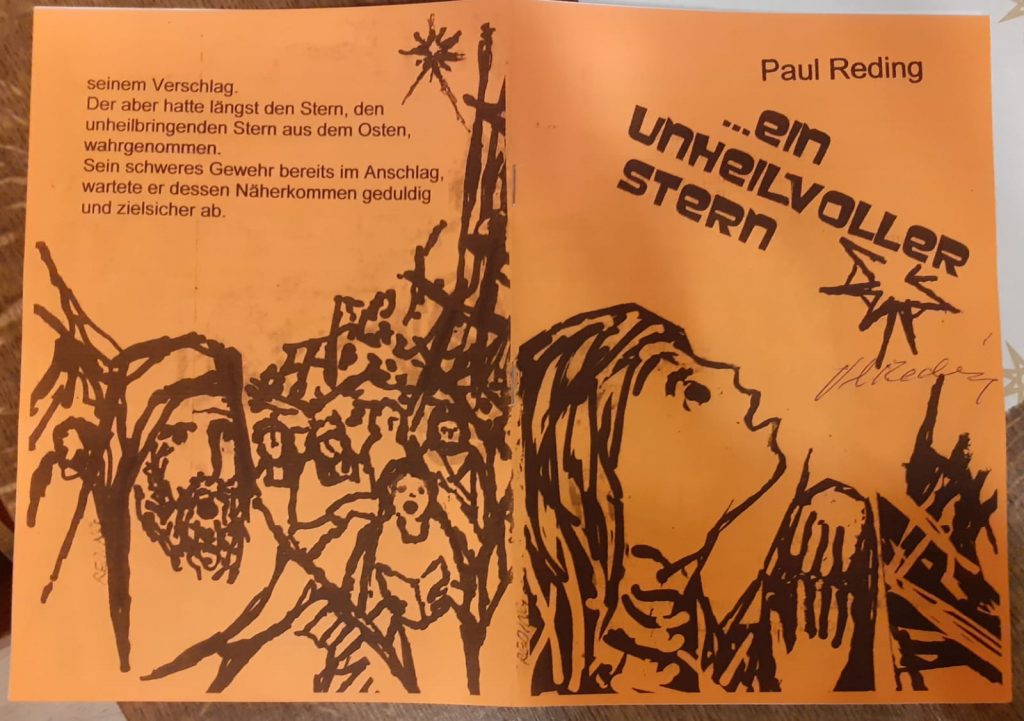 seinem Verschlag.
Der aber hatte längst den Stern, den
unheilbringenden Stern aus dem Osten,
wahrgenommen.
Sein schweres Gewehr bereits im Anschlag,
wartete er dessen Näherkommen geduldig
und zielsicher ab.
REDING
Paul Reding
...ein
unheilvoller
Stern
Reding
REDING